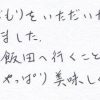 ぐもりをいただいた
ました.
飯田へ行くこと
やっぱり美味しく